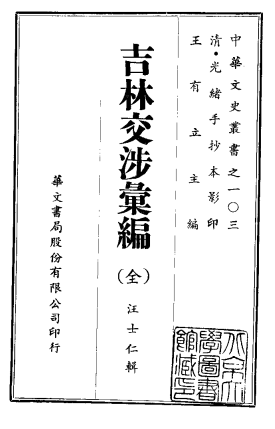 中華文史叢書之一〇三
清·光緒手抄本影印
王有立主編
吉林交涉彙編
(全)
汪士仁輯
華文書局股份有限公司印行
北京大
學圖書
館藏印